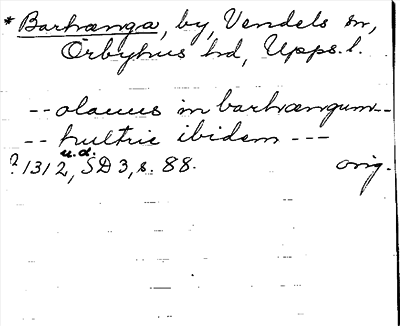 * Barhænga, by, Vendels sn,
Örbyhus hd, Upps. l.
-- olauus in barhængum --
-- hultric ibidem ---
u.d.
? 1312, SD 3, s. 88. orig.